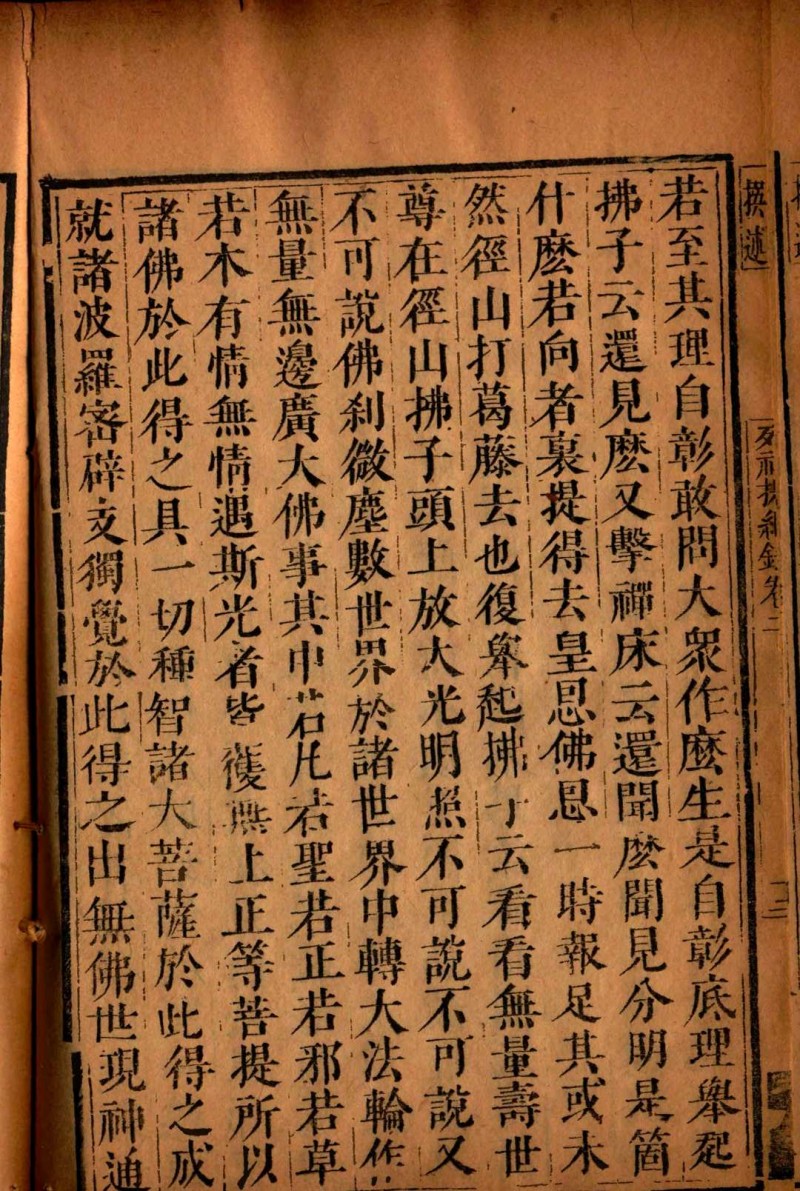 撰述
若至其理自彰敢問大衆作麽生是自彰底理舉起
拂子云還見麽又擊禪床云還聞麽聞見分明是箇
什麽若向者裏提得去皇恩佛恩一時報足其或未
然徑山打葛藤去也復舉起拂子云看看無量壽世
尊在徑山拂子頭上放大光明照不可說不可說又
不可說佛刹微塵數世界於諸世界中轉大法輪作
無量無邊廣大佛事其中若凡若聖若正若邪若草
若木有情無情遇斯光者皆獲無上正等菩提所以
諸佛於此得之具一切種智諸大菩薩於此得之成
就諸波羅密辟支獨覺於此得之出無佛世現神通